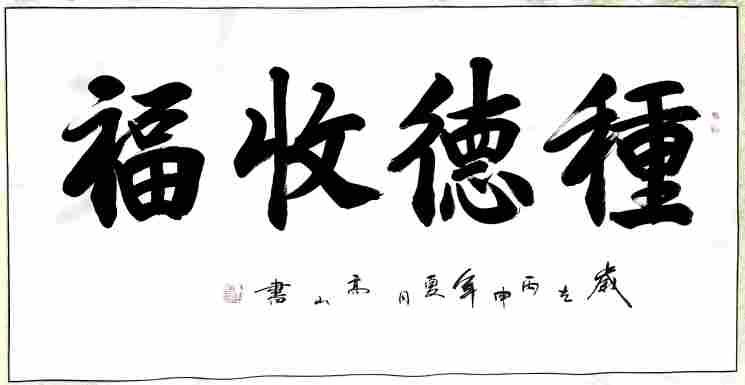 種德收福
歲在丙申年夏月高山書